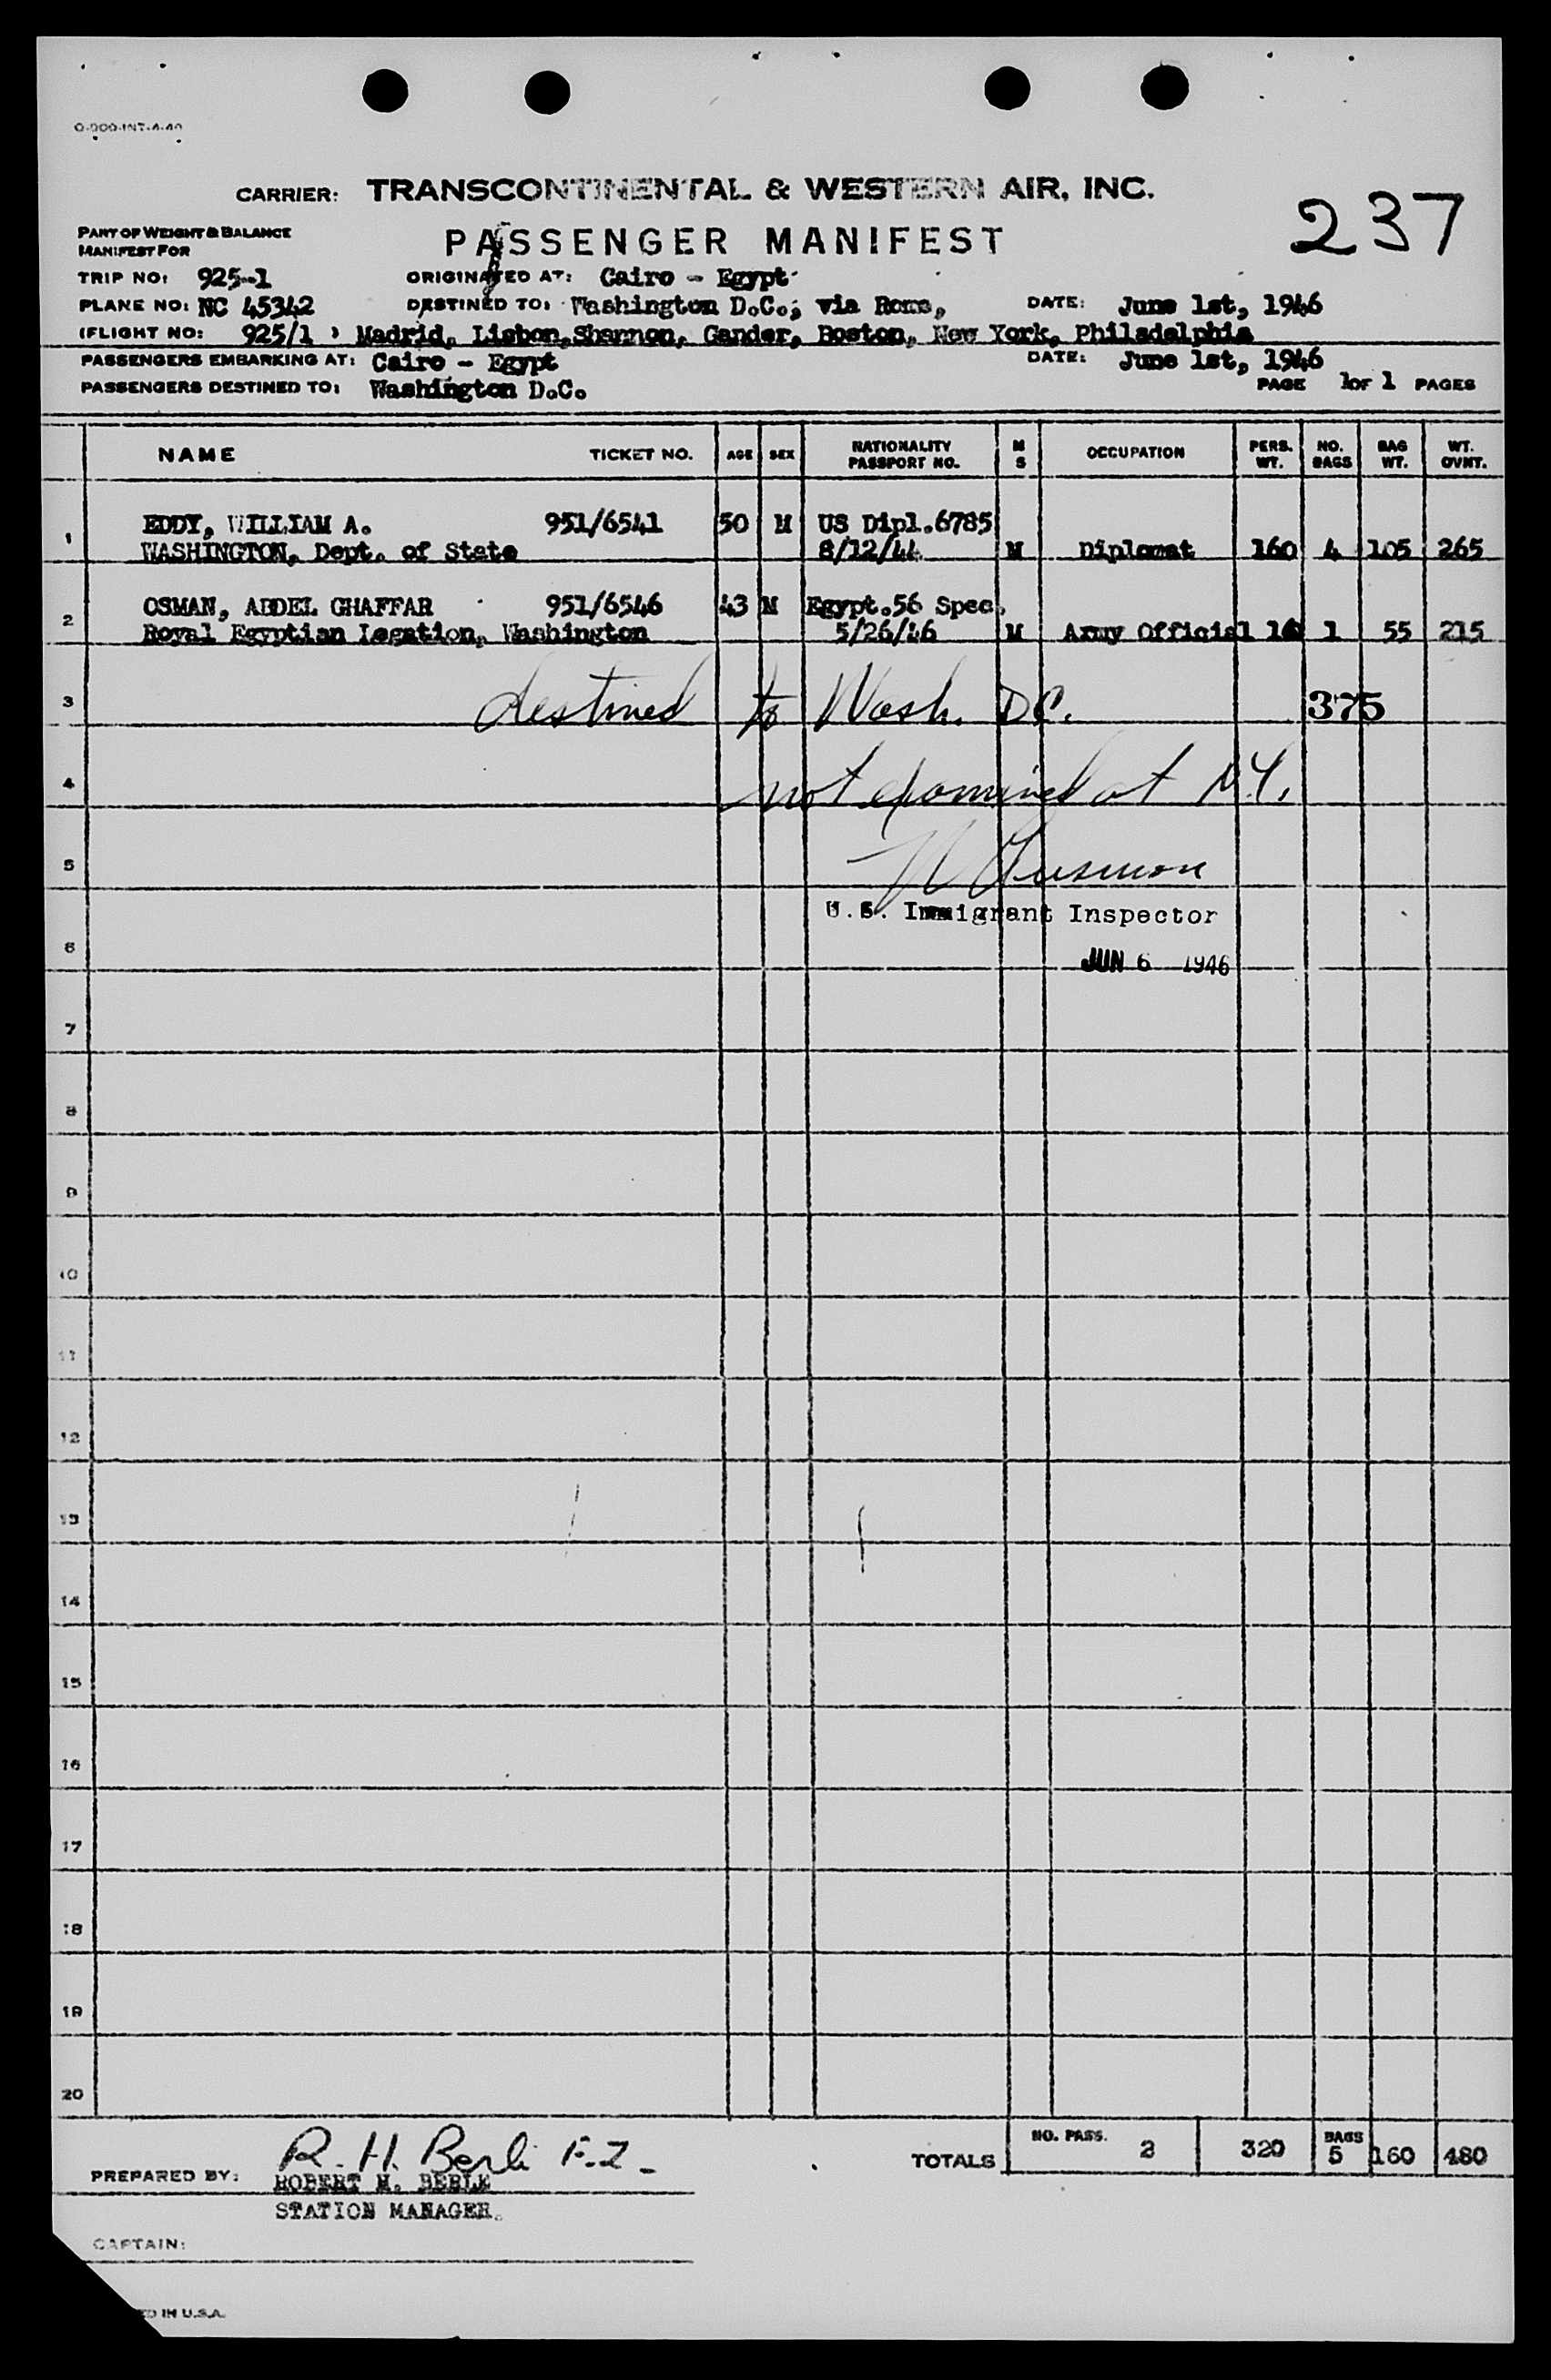 CARRIER: TRANSCONTINENTAL & WESTERN AIR, INC.
237
PART OF WEIGHT & BALANCE
MANIFEST FOR
PASSENGER MANIFEST
TRIP NO: 925-1 ORIGINATED AT: Cairo - Egypt
PLANE NO: NC 45342 DESTINED TO: Washington D.C.; via Rome, DATE: June 1st, 1946
(FLIGHT NO: 925/1 ) Madrid, Lisbon, Shannon, Gander, Boston, New York, Philadelphia
PASSENGERS EMBARKING AT: Cairo - Egypt DATE: June 1st, 1946
PASSENGERS DESTINED TO: Washington D.C. PAGE 1 OF 1 PAGES
NAME TICKET NO. AGE SEX NATIONALITY PASSPORT NO. M S OCCUPATION PERS. WT. NO. BAGS BAG WT. WT. OVNT.
1 EDDY, WILLIAM A. 951/6541 50 M US Dipl.6785
WASHINGTON, Dept. of State 8/12/44 M Diplomat 160 4 105 265
2 OSMAN, ABDEL GHAFFAR 951/6546 43 M Egypt.56 Spec.
Royal Egyptian Legation, Washington 5/26/46 M Army Official 1 55 215
3 destined to Wash. D.C. 375
4 not examined at N.Y.
5
U.S. Immigrant Inspector
6 JUN 6 1946
7
8
9
10
11
12
13
14
15
16
17
18
19
20
TOTALS NO. PASS. 2 320 BAGS 5 160 480
R. H. Berli
PREPARED BY: ROBERT H. BERLE
STATION MANAGER.
CAPTAIN:
IN U.S.A.